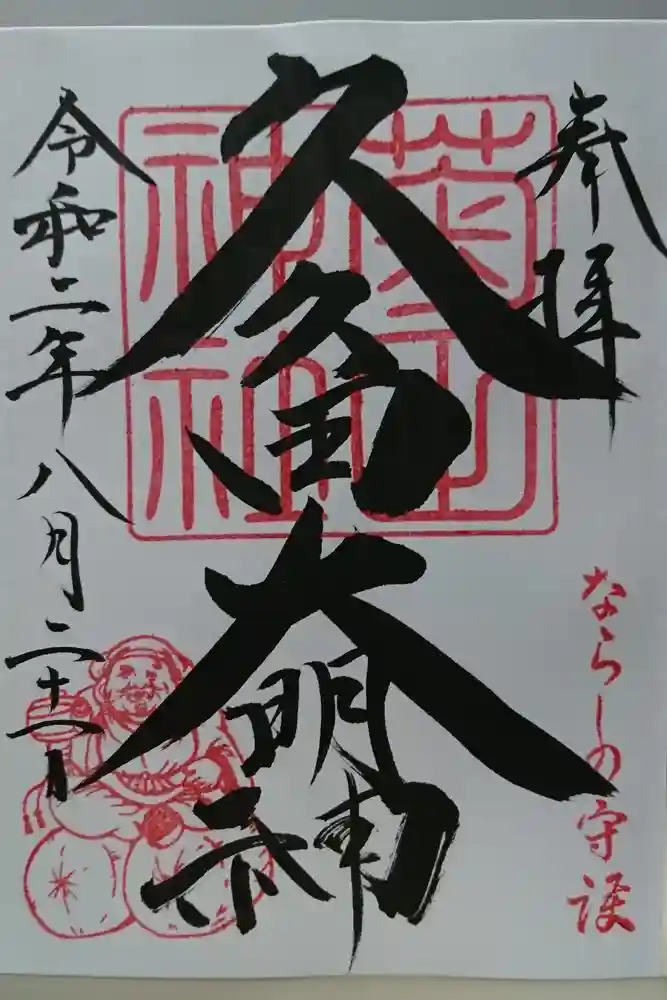 奉拝
ならしの守護
菊田
神社
久久田大明神
令和二年八月二十一日